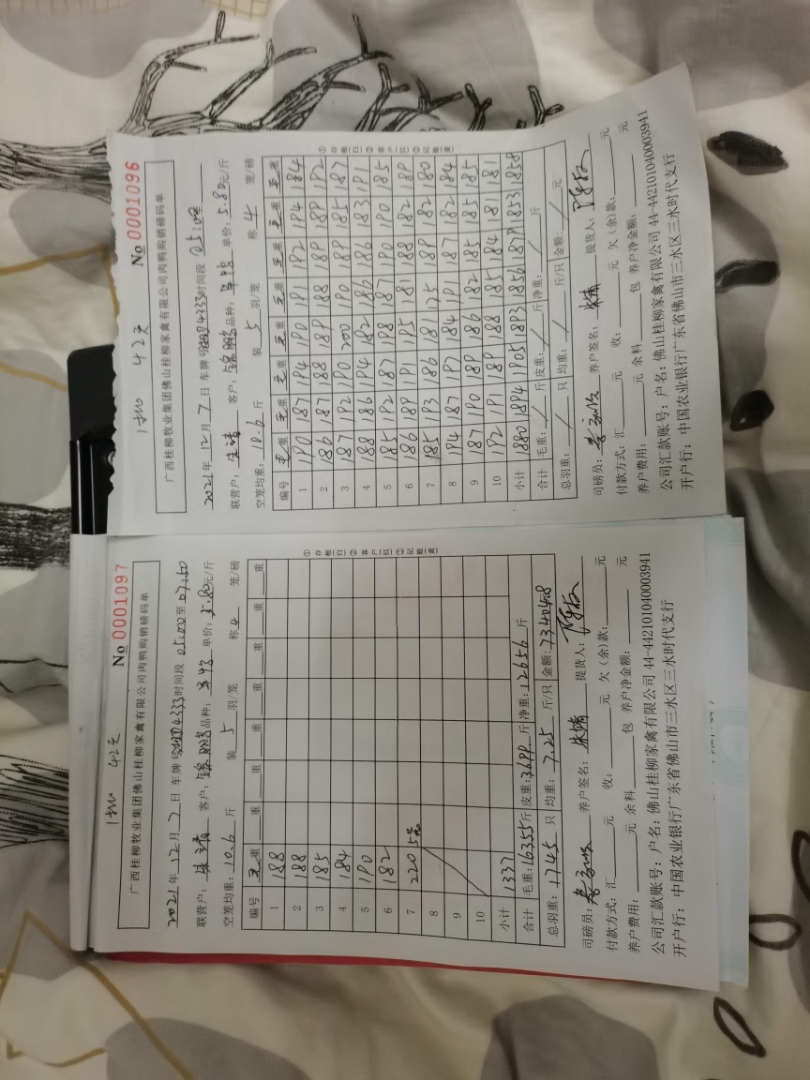 1批 42元
No 0001097
广西桂柳牧业集团佛山桂柳家禽有限公司肉鸭购销磅码单
2021年12月7日 车牌号 04333时间段 05:00至07:50
联营户: 朱靖 客户: 锦鹏 品种: 单价: 5.80元/斤
空笼均重: 10.6 斤 装 5 羽/笼 称 4 笼/磅
编号 毛重 重 重 重 重 重 重 重
1 188
2 188
3 185
4 184
5 190
6 182
7 220 5笼
8
9
10
小计 1337
合计 毛重: 16355斤 皮重: 3699斤 净重: 12656斤
总羽重: 1745 只 均重: 7.25 斤/只 金额: 73404.8
①存根(白)②客户(红)③记账(黄)
司磅员: 养户签名: 朱靖 提货人:
付款方式: 汇 元 收: 元 欠(余)款: 元
养户费用: 元 余料 包 养户净金额: 元
公司汇款账号: 户名: 佛山桂柳家禽有限公司 44-442101040003941
开户行: 中国农业银行广东省佛山市三水区三水时代支行
1批 42元
No 0001096
广西桂柳牧业集团佛山桂柳家禽有限公司肉鸭购销磅码单
2021年12月7日 车牌号 04333时间段 05:00
联营户: 朱靖 客户: 锦鹏 品种: 单价: 5.80元/斤
空笼均重: 10.6 斤 装 5 羽/笼 称 4 笼/磅
编号 毛重 毛重 毛重 毛重 毛重 毛重 毛重 毛重
1 190 187 194 190 191 192 194 184
2 186 187 188 189 188 189 189 192
3 187 192 190 200 190 189 185 187
4 188 186 194 192 186 186 183 191
5 185 192 187 188 187 190 190 185
6 186 189 191 195 181 188 182 189
7 185 193 186 181 175 189 182 180
8 194 187 197 184 191 187 182 184
9 187 190 189 186 182 185 185 185
10 192 191 189 188 185 184 181 181
小计 1880 1894 1905 1893 1856 1879 1853 1858
合计 毛重: / 斤 皮重: / 斤 净重: / 斤
总羽重: / 只 均重: / 斤/只 金额: / 元
①存根(白)②客户(红)③记账(黄)
司磅员: 养户签名: 朱靖 提货人:
付款方式: 汇 元 收: 元 欠(余)款: 元
养户费用: 元 余料 包 养户净金额: 元
公司汇款账号: 户名: 佛山桂柳家禽有限公司 44-442101040003941
开户行: 中国农业银行广东省佛山市三水区三水时代支行